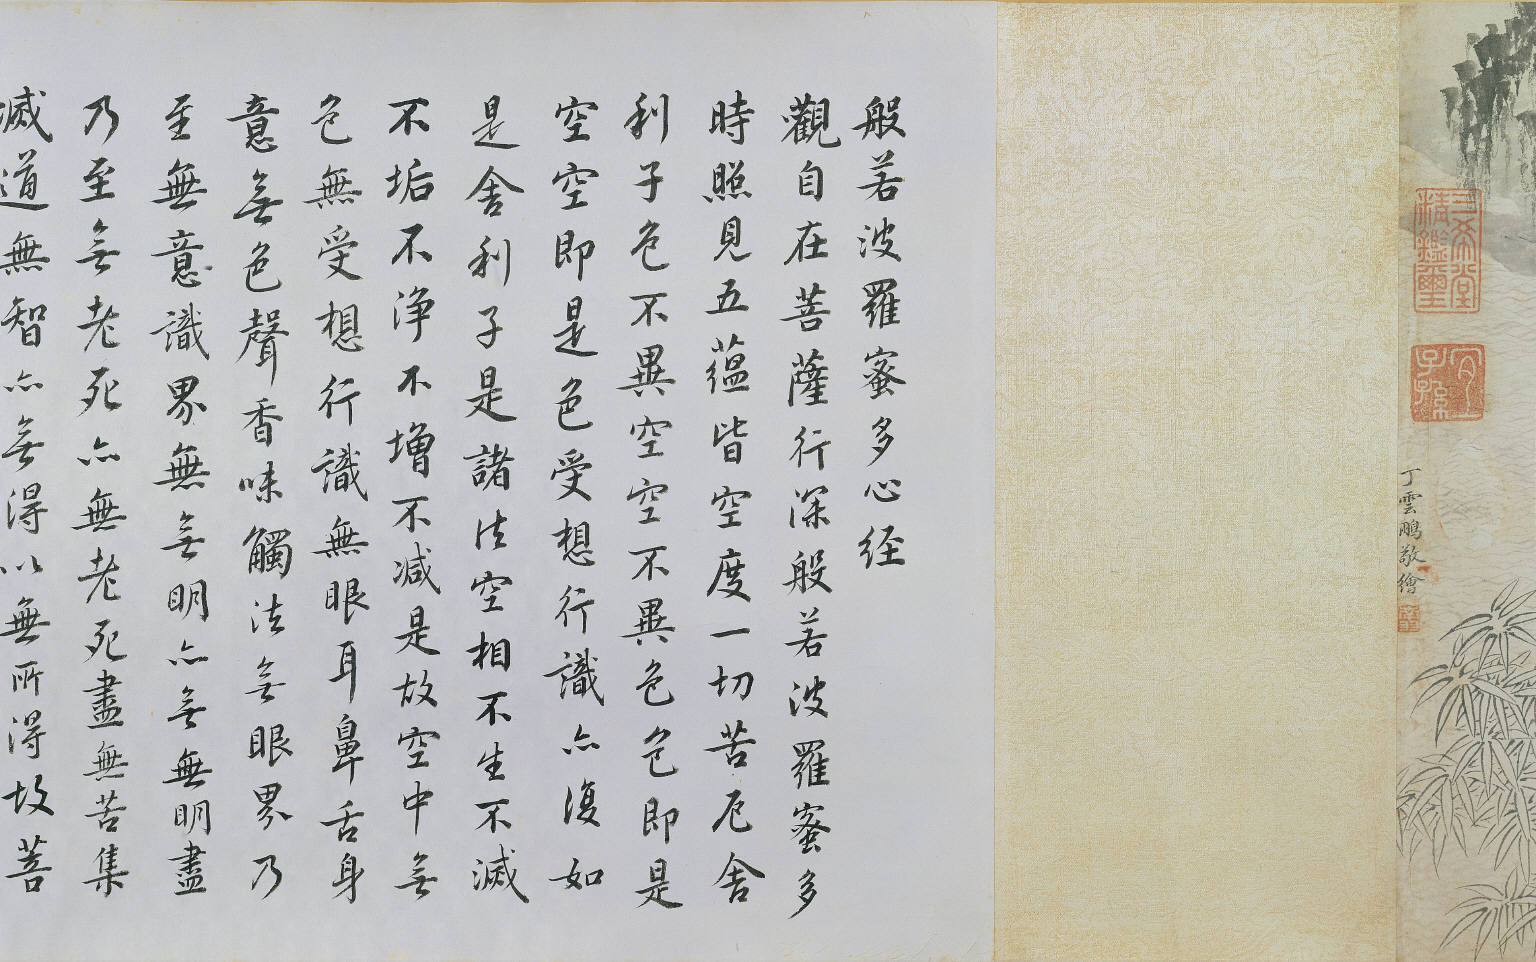 三希堂
精鑑璽
宜
子孫
丁雲鵬敬繪
般若波羅蜜多心経
觀自在菩薩行深般若波羅蜜多
時照見五蘊皆空度一切苦厄舍
利子色不異空空不異色色即是
空空即是色受想行識亦復如
是舍利子是諸法空相不生不滅
不垢不淨不增不減是故空中無
色無受想行識無眼耳鼻舌身
意無色聲香味觸法無眼界乃
至無意識界無無明亦無無明盡
乃至無老死亦無老死盡無苦集
滅道無智亦無得以無所得故菩